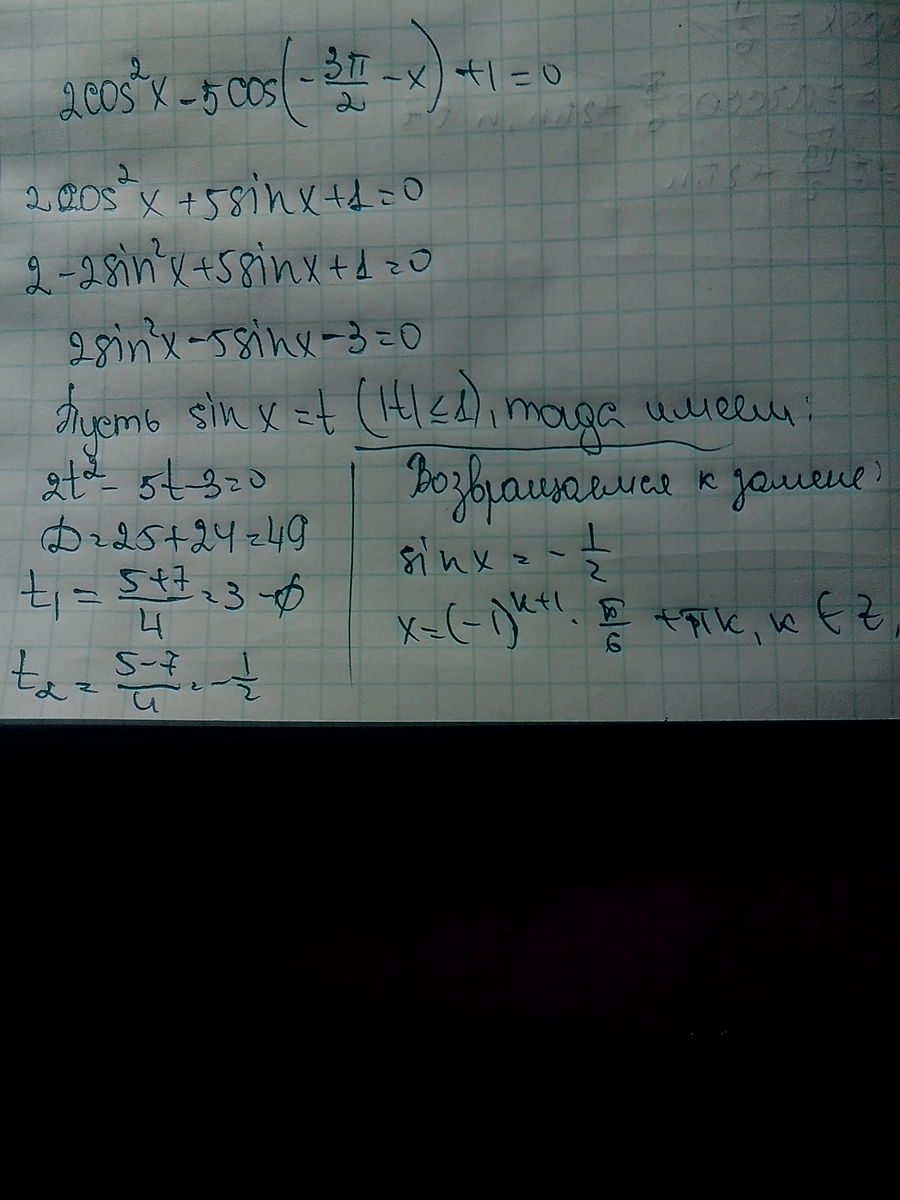 2cos²x - 5cos(-3π/2 - x) + 1 = 0
2cos²x + 5sinx + 1 = 0
2 - 2sin²x + 5sinx + 1 = 0
2sin²x - 5sinx - 3 = 0
Пусть sin x = t (|t| ≤ 1), тогда имеем:
2t² - 5t - 3 = 0
D = 25 + 24 = 49
t₁ = (5+7)/4 = 3 - ∅
t₂ = (5-7)/4 = -1/2
Возвращаемся к замене:
sin x = -1/2
x = (-1)^(k+1) · π/6 + πk, k ∈ Z,